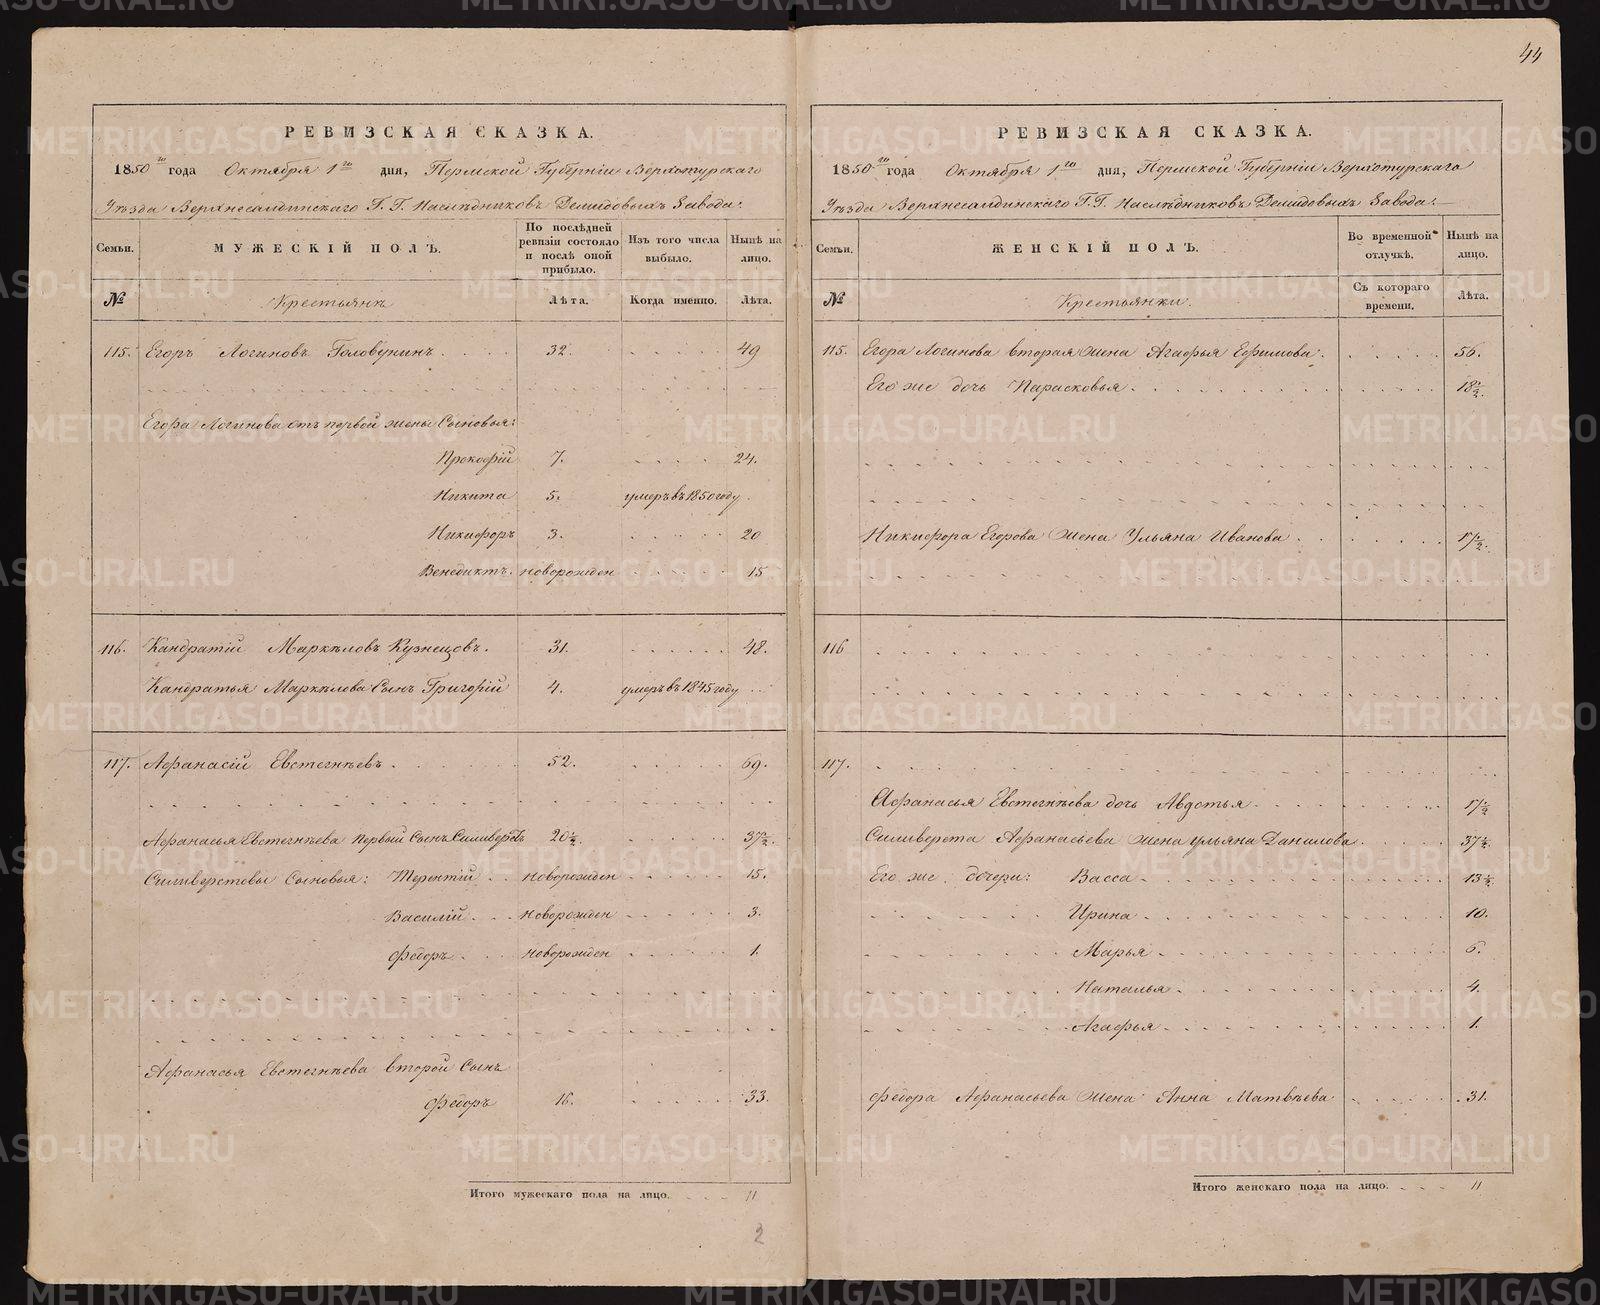 44
РЕВИЗСКАЯ СКАЗКА.
1850го года Октября 1го дня, Пермской Губерніи Верхотурскаго
Уѣзда Верхнесалдинскаго Г. Г. Наслѣдниковъ Демидовыхъ Завода:
Семьи. МУЖЕСКІЙ ПОЛЪ. По послѣдней ревизіи состояло и послѣ оной прибыло. Изъ того числа выбыло. Нынѣ на лицо.
№ Крестьянъ Лѣта. Когда именно. Лѣта.
115. Егоръ Логиновъ Головунинъ 32. 49
Егора Логинова отъ первой жены Сыновья:
Прокофій 7. 24.
Никита 5. умеръ въ 1850 году.
Никифоръ 3. 20
Венедиктъ. новорожден 15
116. Кандратій Маркѣловъ Кузнецовъ. 31. 48.
Кандратья Маркѣлова Сынъ Григорій 4. умеръ въ 1845 году
117. Афанасій Евстегнѣевъ 52. 69.
Афанасья Евстегнѣева первый Сынъ Силиверстъ 20½. 37½.
Силиверстовы Сыновья: Терентій новорожден 15.
Василій новорожден 3.
Федоръ новорожден 1.
Афанасья Евстегнѣева второй Сынъ
Федоръ 16. 33.
Итого мужескаго пола на лицо. 11
2
РЕВИЗСКАЯ СКАЗКА.
1850го года Октября 1го дня, Пермской Губерніи Верхотурскаго
Уѣзда Верхнесалдинскаго Г. Г. Наслѣдниковъ Демидовыхъ Завода:
Семьи. ЖЕНСКІЙ ПОЛЪ. Во временной отлучкѣ. Нынѣ на лицо.
№ Крестьянки. Съ котораго времени. Лѣта.
115. Егора Логинова вторая жена Агафья Ефимова. 56.
Его же дочь Парасковья 18½.
Никифора Егорова жена Ульяна Иванова 17½.
116
117.
Афанасья Евстегнѣева дочь Авдотья 17½
Силиверста Афанасьева жена ульяна Данилова 37½
Его же дочери: Васса 13½
Ирина 10.
Марья 6.
Наталья 4.
Агафья 1.
Федора Афанасьева жена Анна Матвѣева 31.
Итого женскаго пола на лицо. 11
METRIKI.GASO-URAL.RU